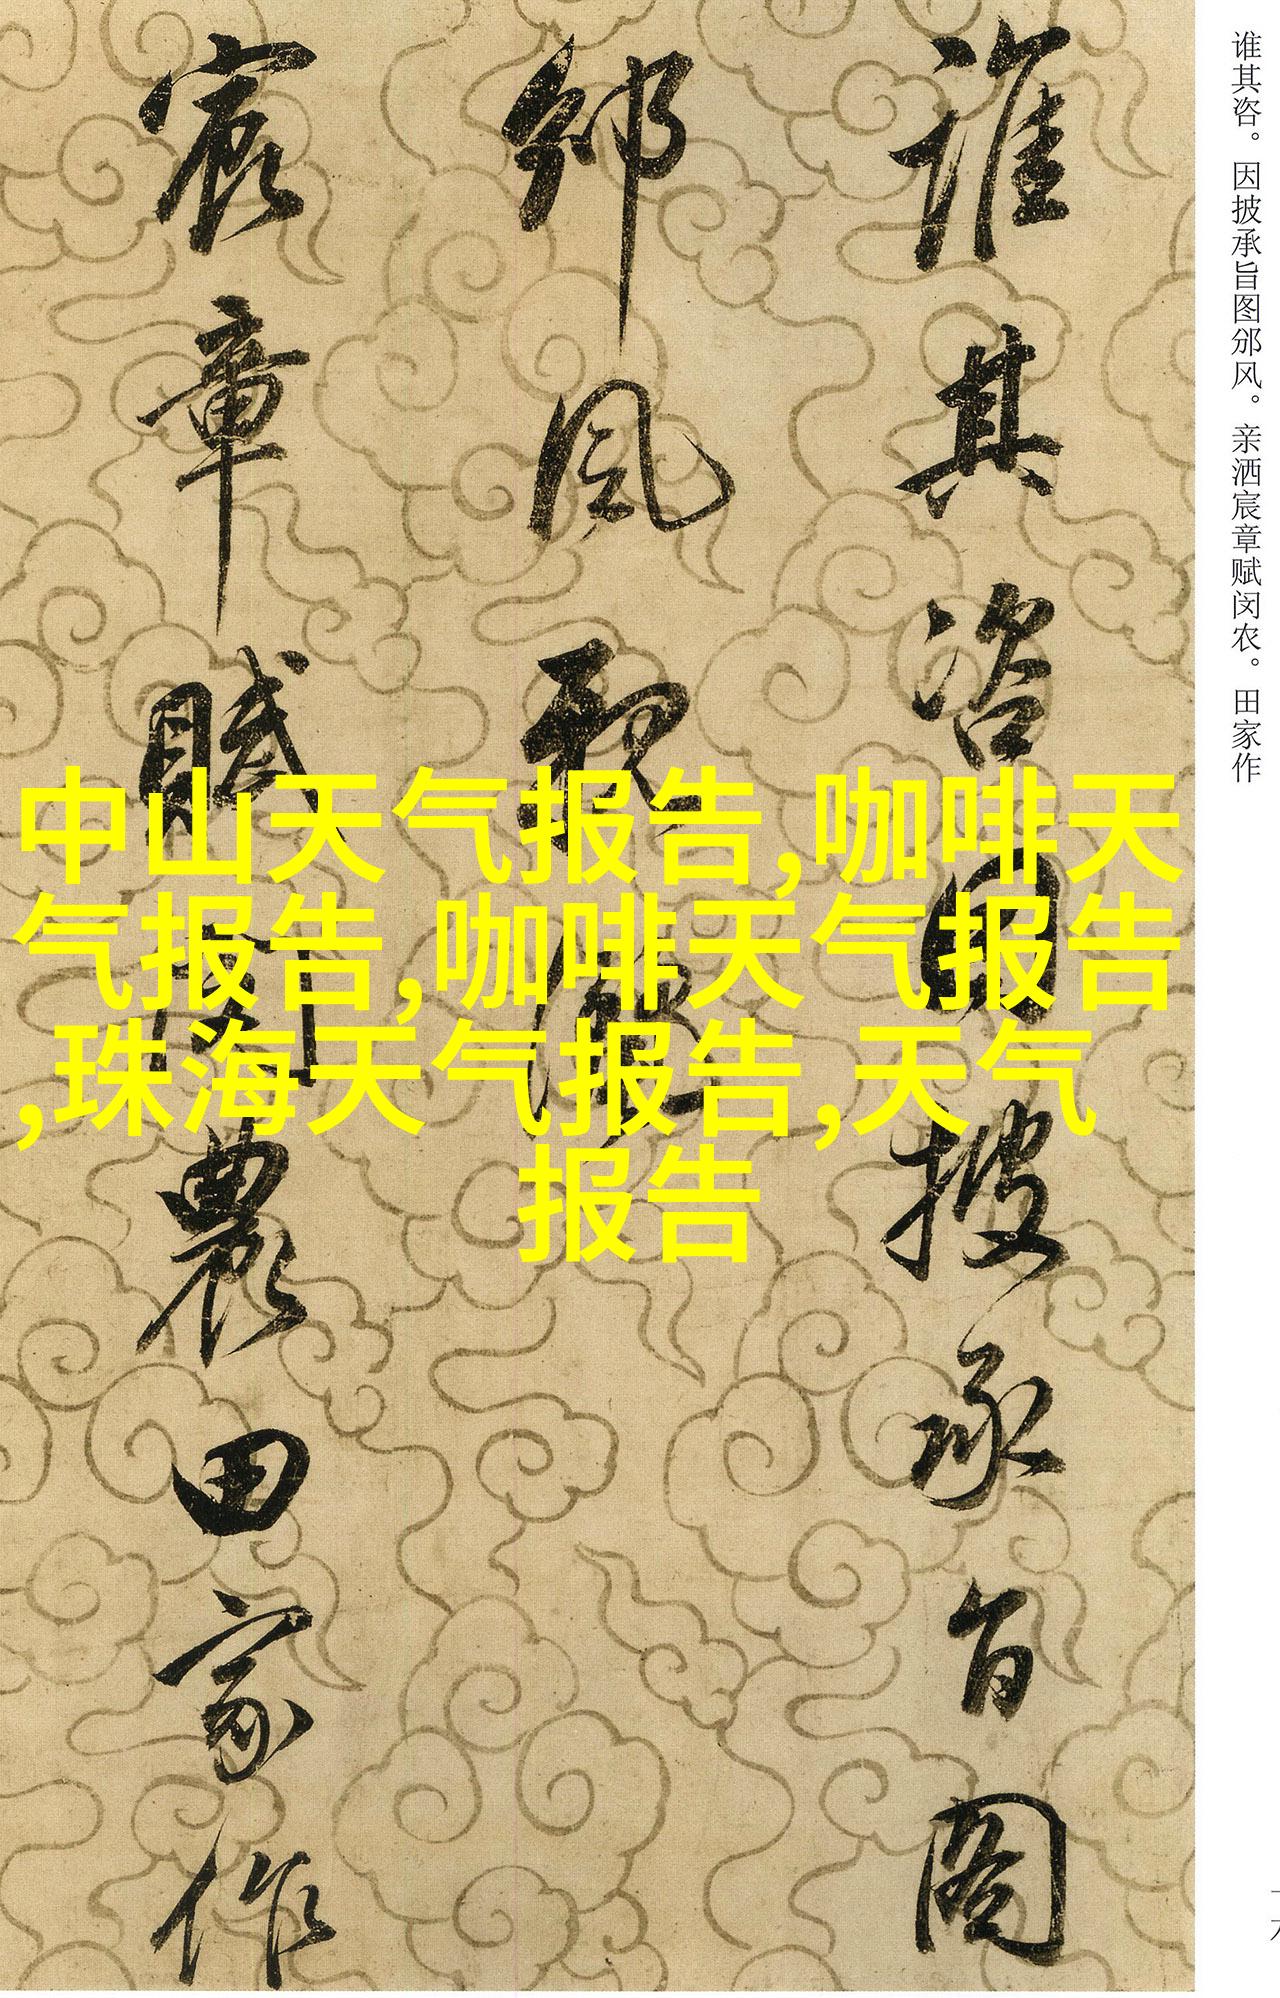 谁其咨。因披承旨图邠风。亲洒宸章赋闵农。田家作
誰其咨因披承旨圖
邠風親灑
宸章賦閔農田家作
中山天气报告,咖啡天
气报告,咖啡天气报告
,珠海天气报告,天气
报告